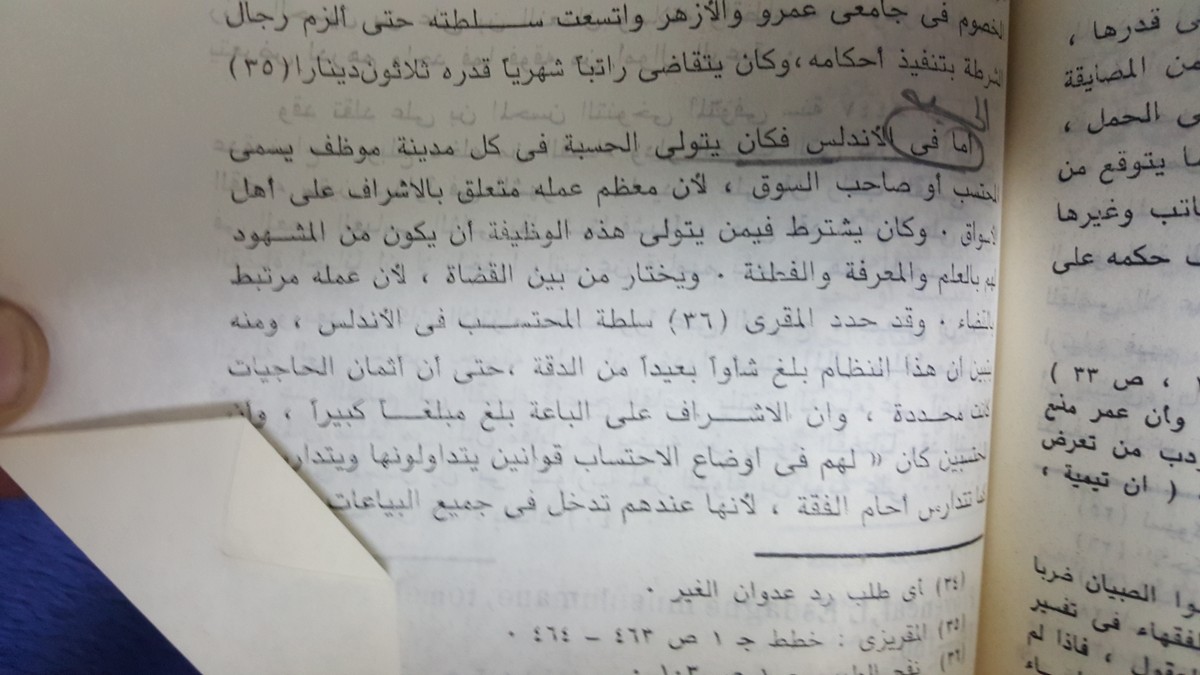 الخصوم فى جامعى عمرو والأزهر واتسعت سلطته حتى ألزم رجال
الشرطة بتنفيذ أحكامه، وكان يتقاضى راتبا شهريا قدره ثلاثون دينارا (٣٥)
أما فى الأندلس فكان يتولى الحسبة فى كل مدينة موظف يسمى
المحتسب أو صاحب السوق ، لأن معظم عمله متعلق بالاشراف على أهل
الاسواق . وكان يشترط فيمن يتولى هذه الوظيفة أن يكون من المشهود
لهم بالعلم والمعرفة والفطنة . ويختار من بين القضاة ، لأن عمله مرتبط
بالقضاء . وقد حدد المقرى (٣٦) سلطة المحتسب فى الأندلس ، ومنه
يتبين أن هذا النظام بلغ شأوآ بعيدآ من الدقة ،حتى أن أثمان الحاجيات
كانت محددة ، وان الاشراف على الباعة بلغ مبلغآ كبيرآ ، وان
المحتسبين كان « لهم فى اوضاع الاحتساب قوانين يتداولونها
كما تتدارس أحام الفقة ، لأنها عندهم تدخل فى جميع البياعات
(٣٤) أى طلب رد عدوان الغير .
(٣٥) المقريزى : خطط جـ ١ ص ٤٦٣ – ٤٦٤ .
(٣٦) نفح
قدرها ،
من المضايقة
الحمل ،
يتوقع من
وغيرها
حكمه على
، ص ٣٣ )
وأن عمر منع
من تعرض
( ان تيمية ،
الصبيان ضربا
الفقهاء فى تفسير
، فاذا لم